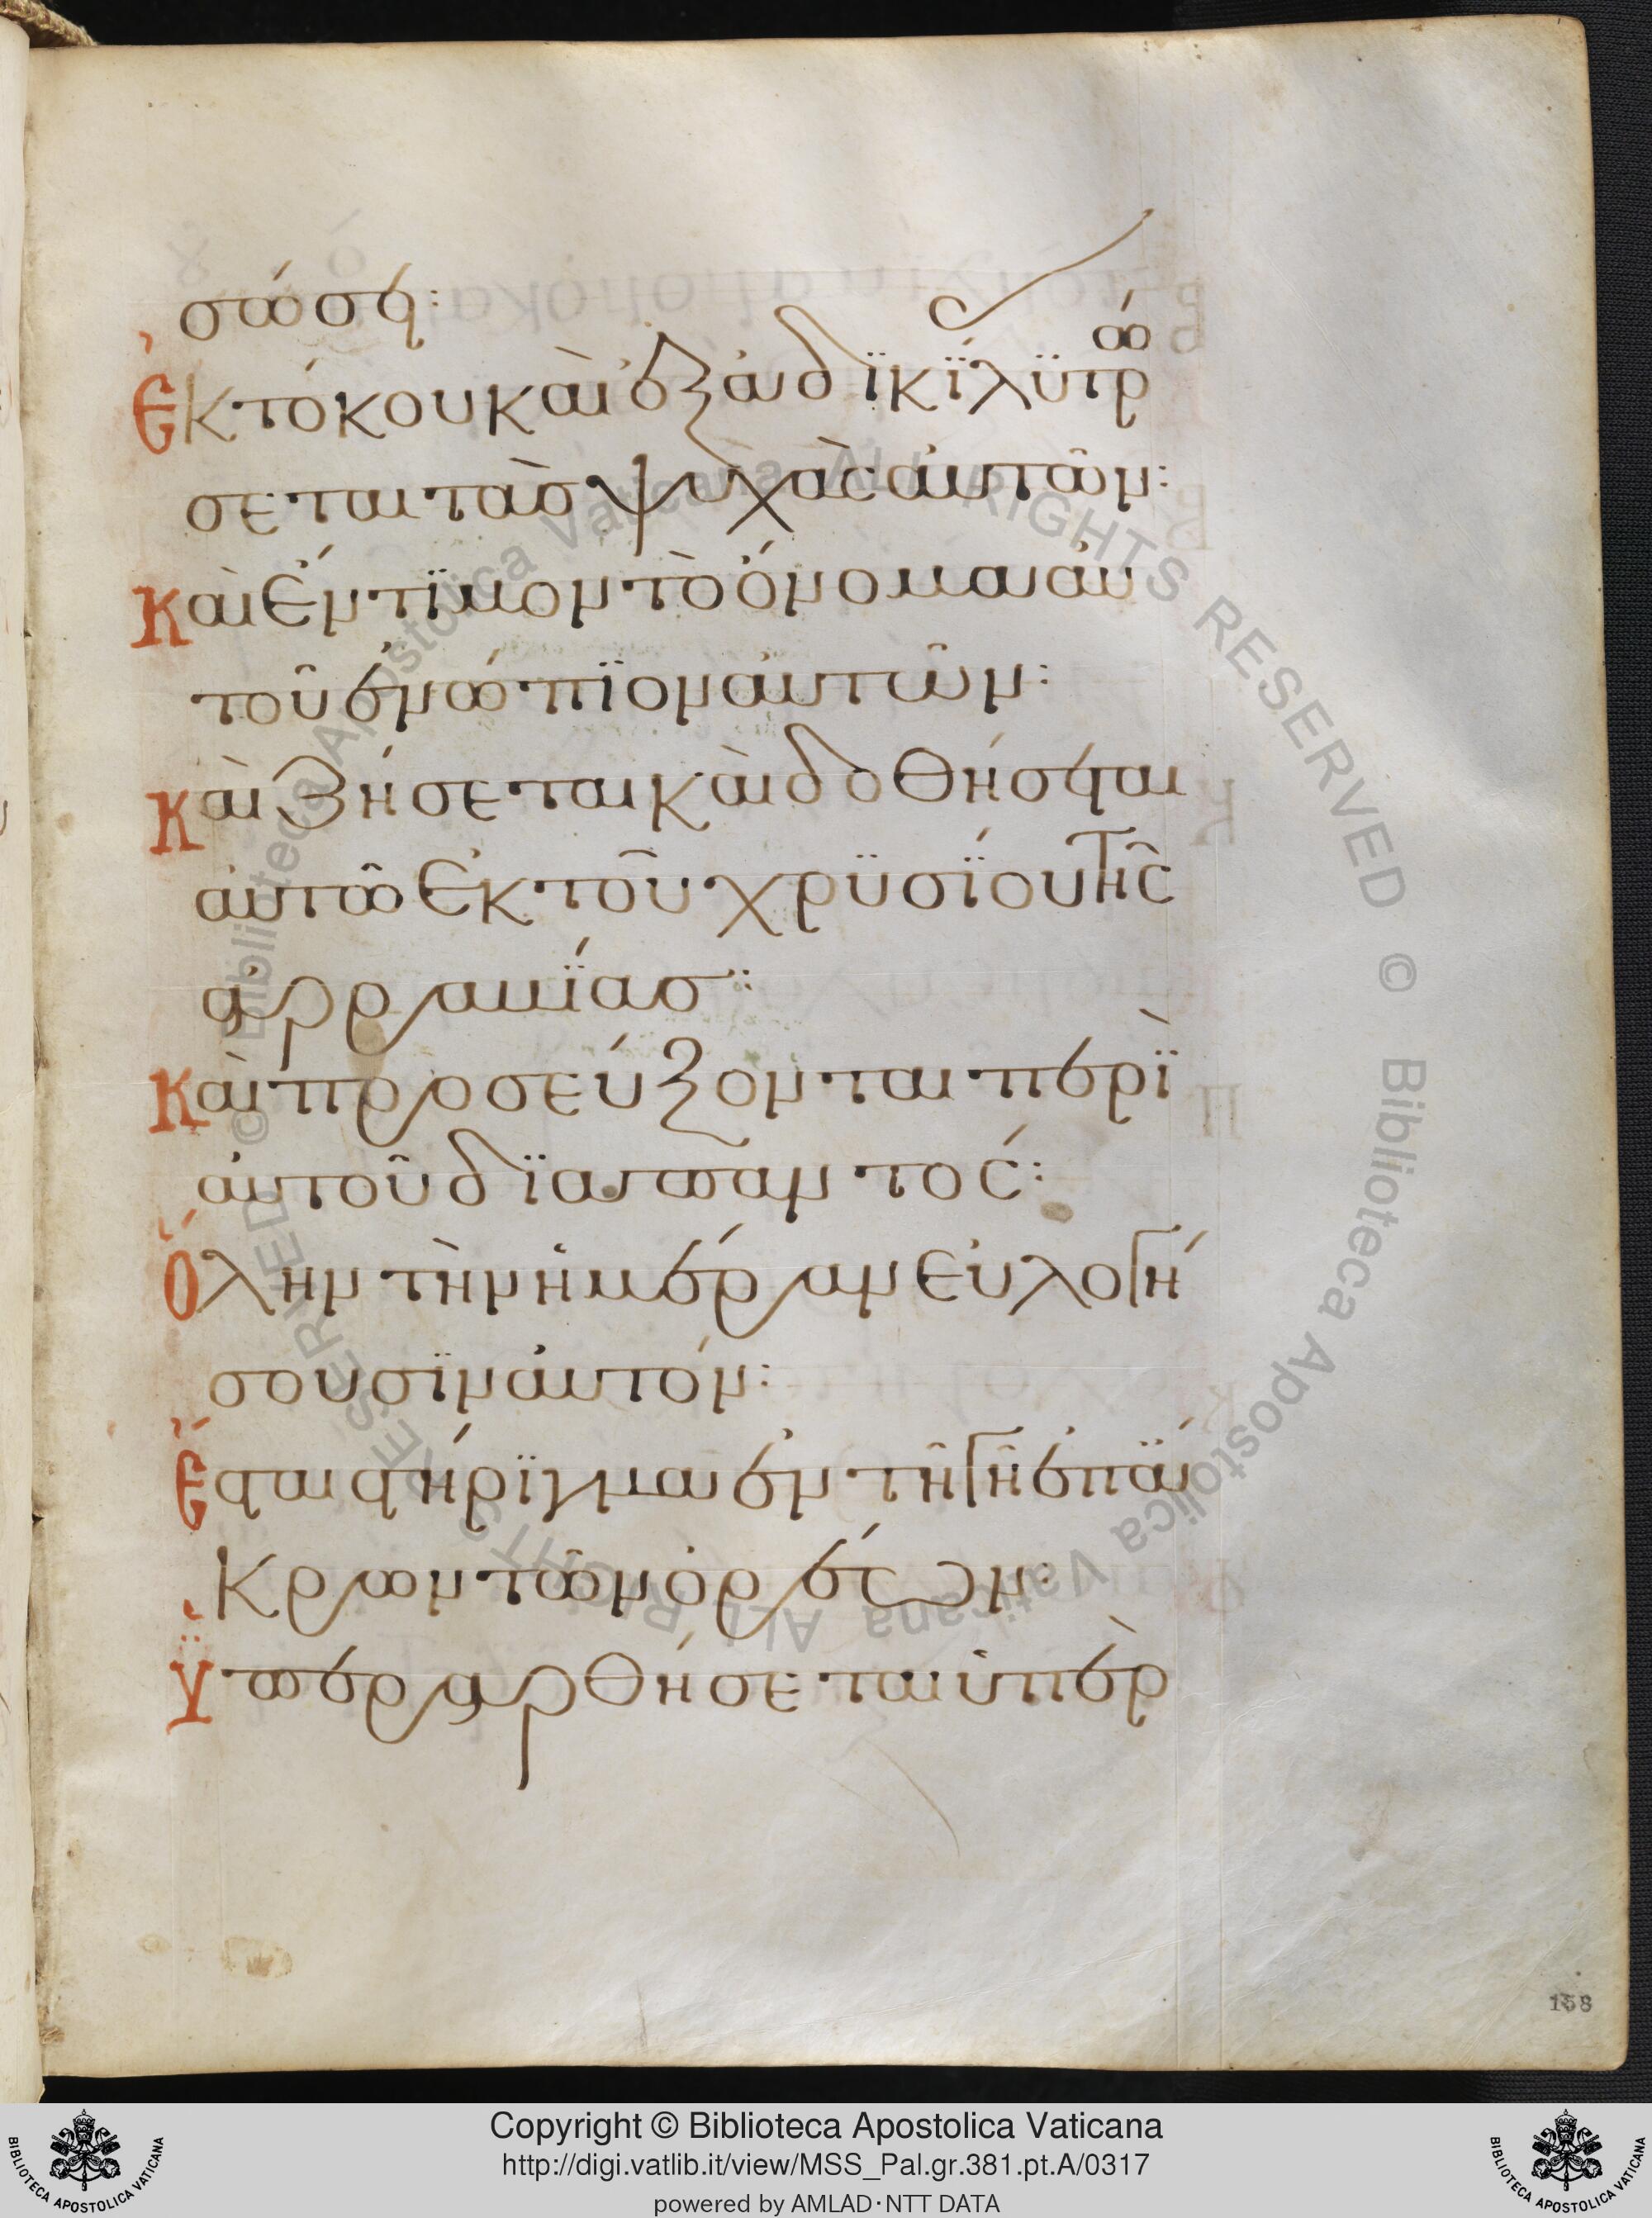 σώσει:
Ἐκ τόκου καὶ ἐξ ἀδϊκΐ λϋτρώ
σεται τὰσ ψυχὰς αὐτῶν:
Καὶ ἔντϊμον τὸ ὄνομα αὐ
τοῦ ἐνώπϊον αὐτῶν:
Καὶ ζήσεται καὶ δοθήσεται
αὐτῶ ἐκ τοῦ χρϋσΐου τῆς
ἀρραμΐασ:
Καὶ προσεύξονται περῒ
αὐτοῦ δϊαπαντός:
Ὅλην τὴν ἡμέραν εὐλογή
σουσϊν αὐτόν:
Ἔσται στήρϊγμα ἐν τῆ γῆ ἐπ ἄ
κρων τῶν ὀρέων:
Ὑπεραρθήσεται ὑπὲρ
158
Copyright © Biblioteca Apostolica Vaticana
http://digi.vatlib.it/view/MSS_Pal.gr.381.pt.A/0317
powered by AMLAD·NTT DATA
BIBLIOTECA APOSTOLICA VATICANA
BIBLIOTECA APOSTOLICA VATICANA
© Biblioteca Apostolica Vaticana ALL RIGHTS RESERVED © Biblioteca Apostolica Vaticana ALL RIGHTS RESERVED